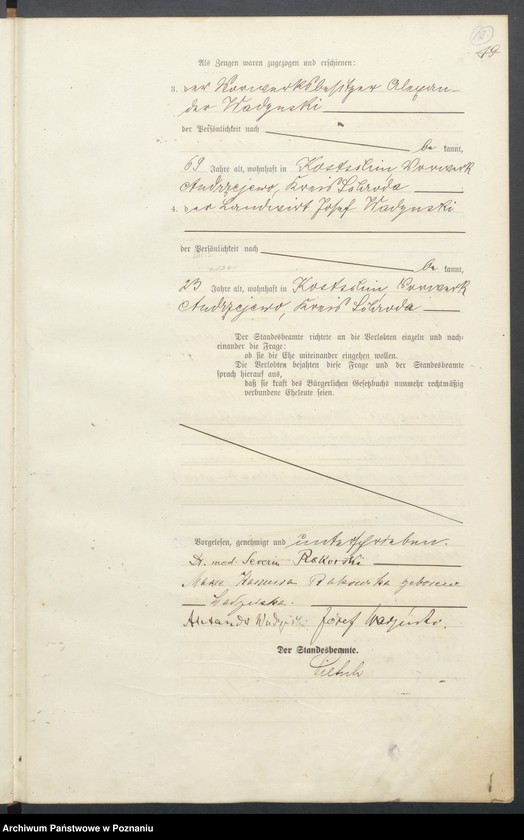 49
Als Zeugen waren zugezogen und erschienen:
3. der Vorwerksbesitzer Alexan-
der Wadynski
der Persönlichkeit nach
be kannt,
69 Jahre alt, wohnhaft in Kostschin Vorwerk
Andrzejewo, Kreis Schroda
4. der Landwirt Josef Wadynski
der Persönlichkeit nach
be kannt,
23 Jahre alt, wohnhaft in Kostschin Vorwerk
Andrzejewo, Kreis Schroda
Der Standesbeamte richtete an die Verlobten einzeln und nach-
einander die Frage:
ob sie die Ehe miteinander eingehen wollen.
Die Verlobten bejahten diese Frage und der Standesbeamte
sprach hierauf aus,
daß sie kraft des Bürgerlichen Gesetzbuchs nunmehr rechtmäßig
verbundene Eheleute seien.
Vorgelesen, genehmigt und unterschrieben.
Dr. med. Severin Rakowski
Rakowska geborene
Wadynska.
Wadyński Józef Wadyński.
Der Standesbeamte.
Archiwum Państwowe w Poznaniu